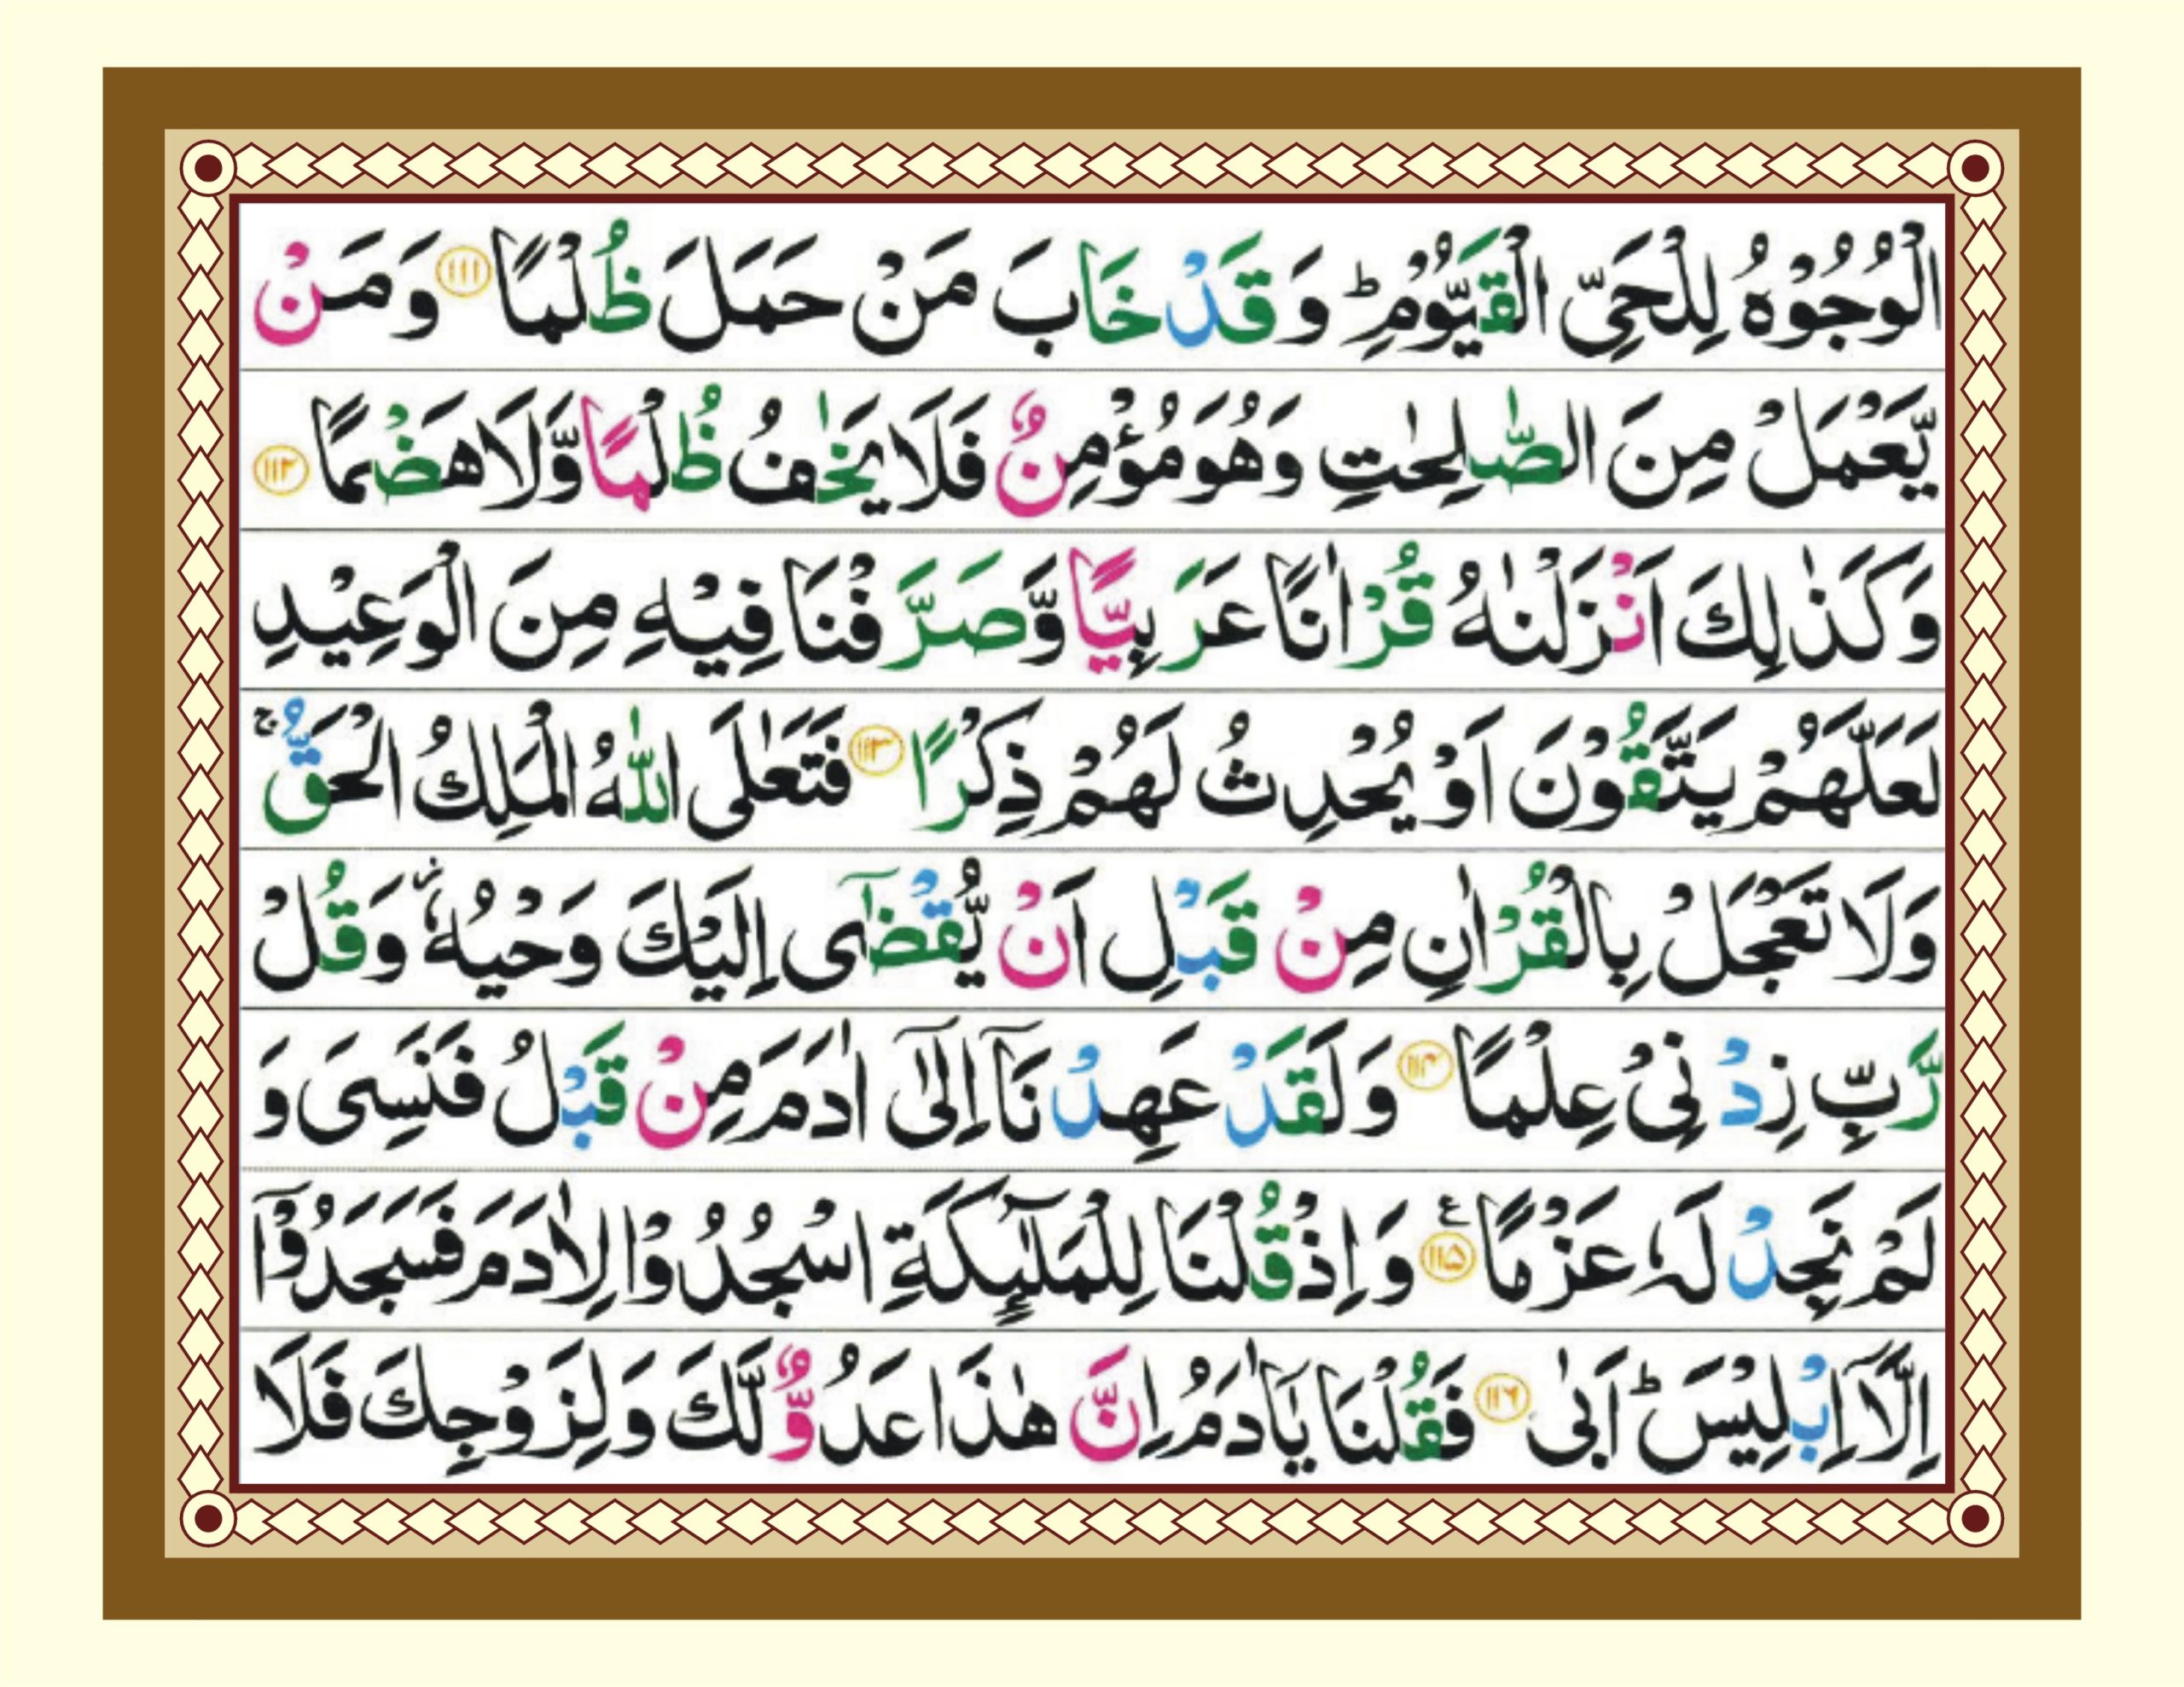 الْوُجُوْهُ لِلْحَیِّ الْقَیُّوْمِ ؕ وَ قَدْ خَابَ مَنْ حَمَلَ ظُلْمًا ۝۱۱۱ وَ مَنْ
یَّعْمَلْ مِنَ الصّٰلِحٰتِ وَ هُوَ مُؤْمِنٌ فَلَا یَخٰفُ ظُلْمًا وَّ لَا هَضْمًا ۝۱۱۲
وَ كَذٰلِكَ اَنْزَلْنٰهُ قُرْاٰنًا عَرَبِیًّا وَّ صَرَّفْنَا فِیْهِ مِنَ الْوَعِیْدِ
لَعَلَّهُمْ یَتَّقُوْنَ اَوْ یُحْدِثُ لَهُمْ ذِكْرًا ۝۱۱۳ فَتَعٰلَی اللّٰهُ الْمَلِكُ الْحَقُّ ۚ
وَ لَا تَعْجَلْ بِالْقُرْاٰنِ مِنْ قَبْلِ اَنْ یُّقْضٰۤی اِلَیْكَ وَحْیُهٗ ؗ وَ قُلْ
رَّبِّ زِدْنِیْ عِلْمًا ۝۱۱۴ وَ لَقَدْ عَهِدْنَاۤ اِلٰۤی اٰدَمَ مِنْ قَبْلُ فَنَسِیَ وَ
لَمْ نَجِدْ لَهٗ عَزْمًا ۝۱۱۵ ع وَ اِذْ قُلْنَا لِلْمَلٰٓىِٕكَةِ اسْجُدُوْا لِاٰدَمَ فَسَجَدُوْۤا
اِلَّاۤ اِبْلِیْسَ ؕ اَبٰی ۝۱۱۶ فَقُلْنَا یٰۤاٰدَمُ اِنَّ هٰذَا عَدُوٌّ لَّكَ وَ لِزَوْجِكَ فَلَا